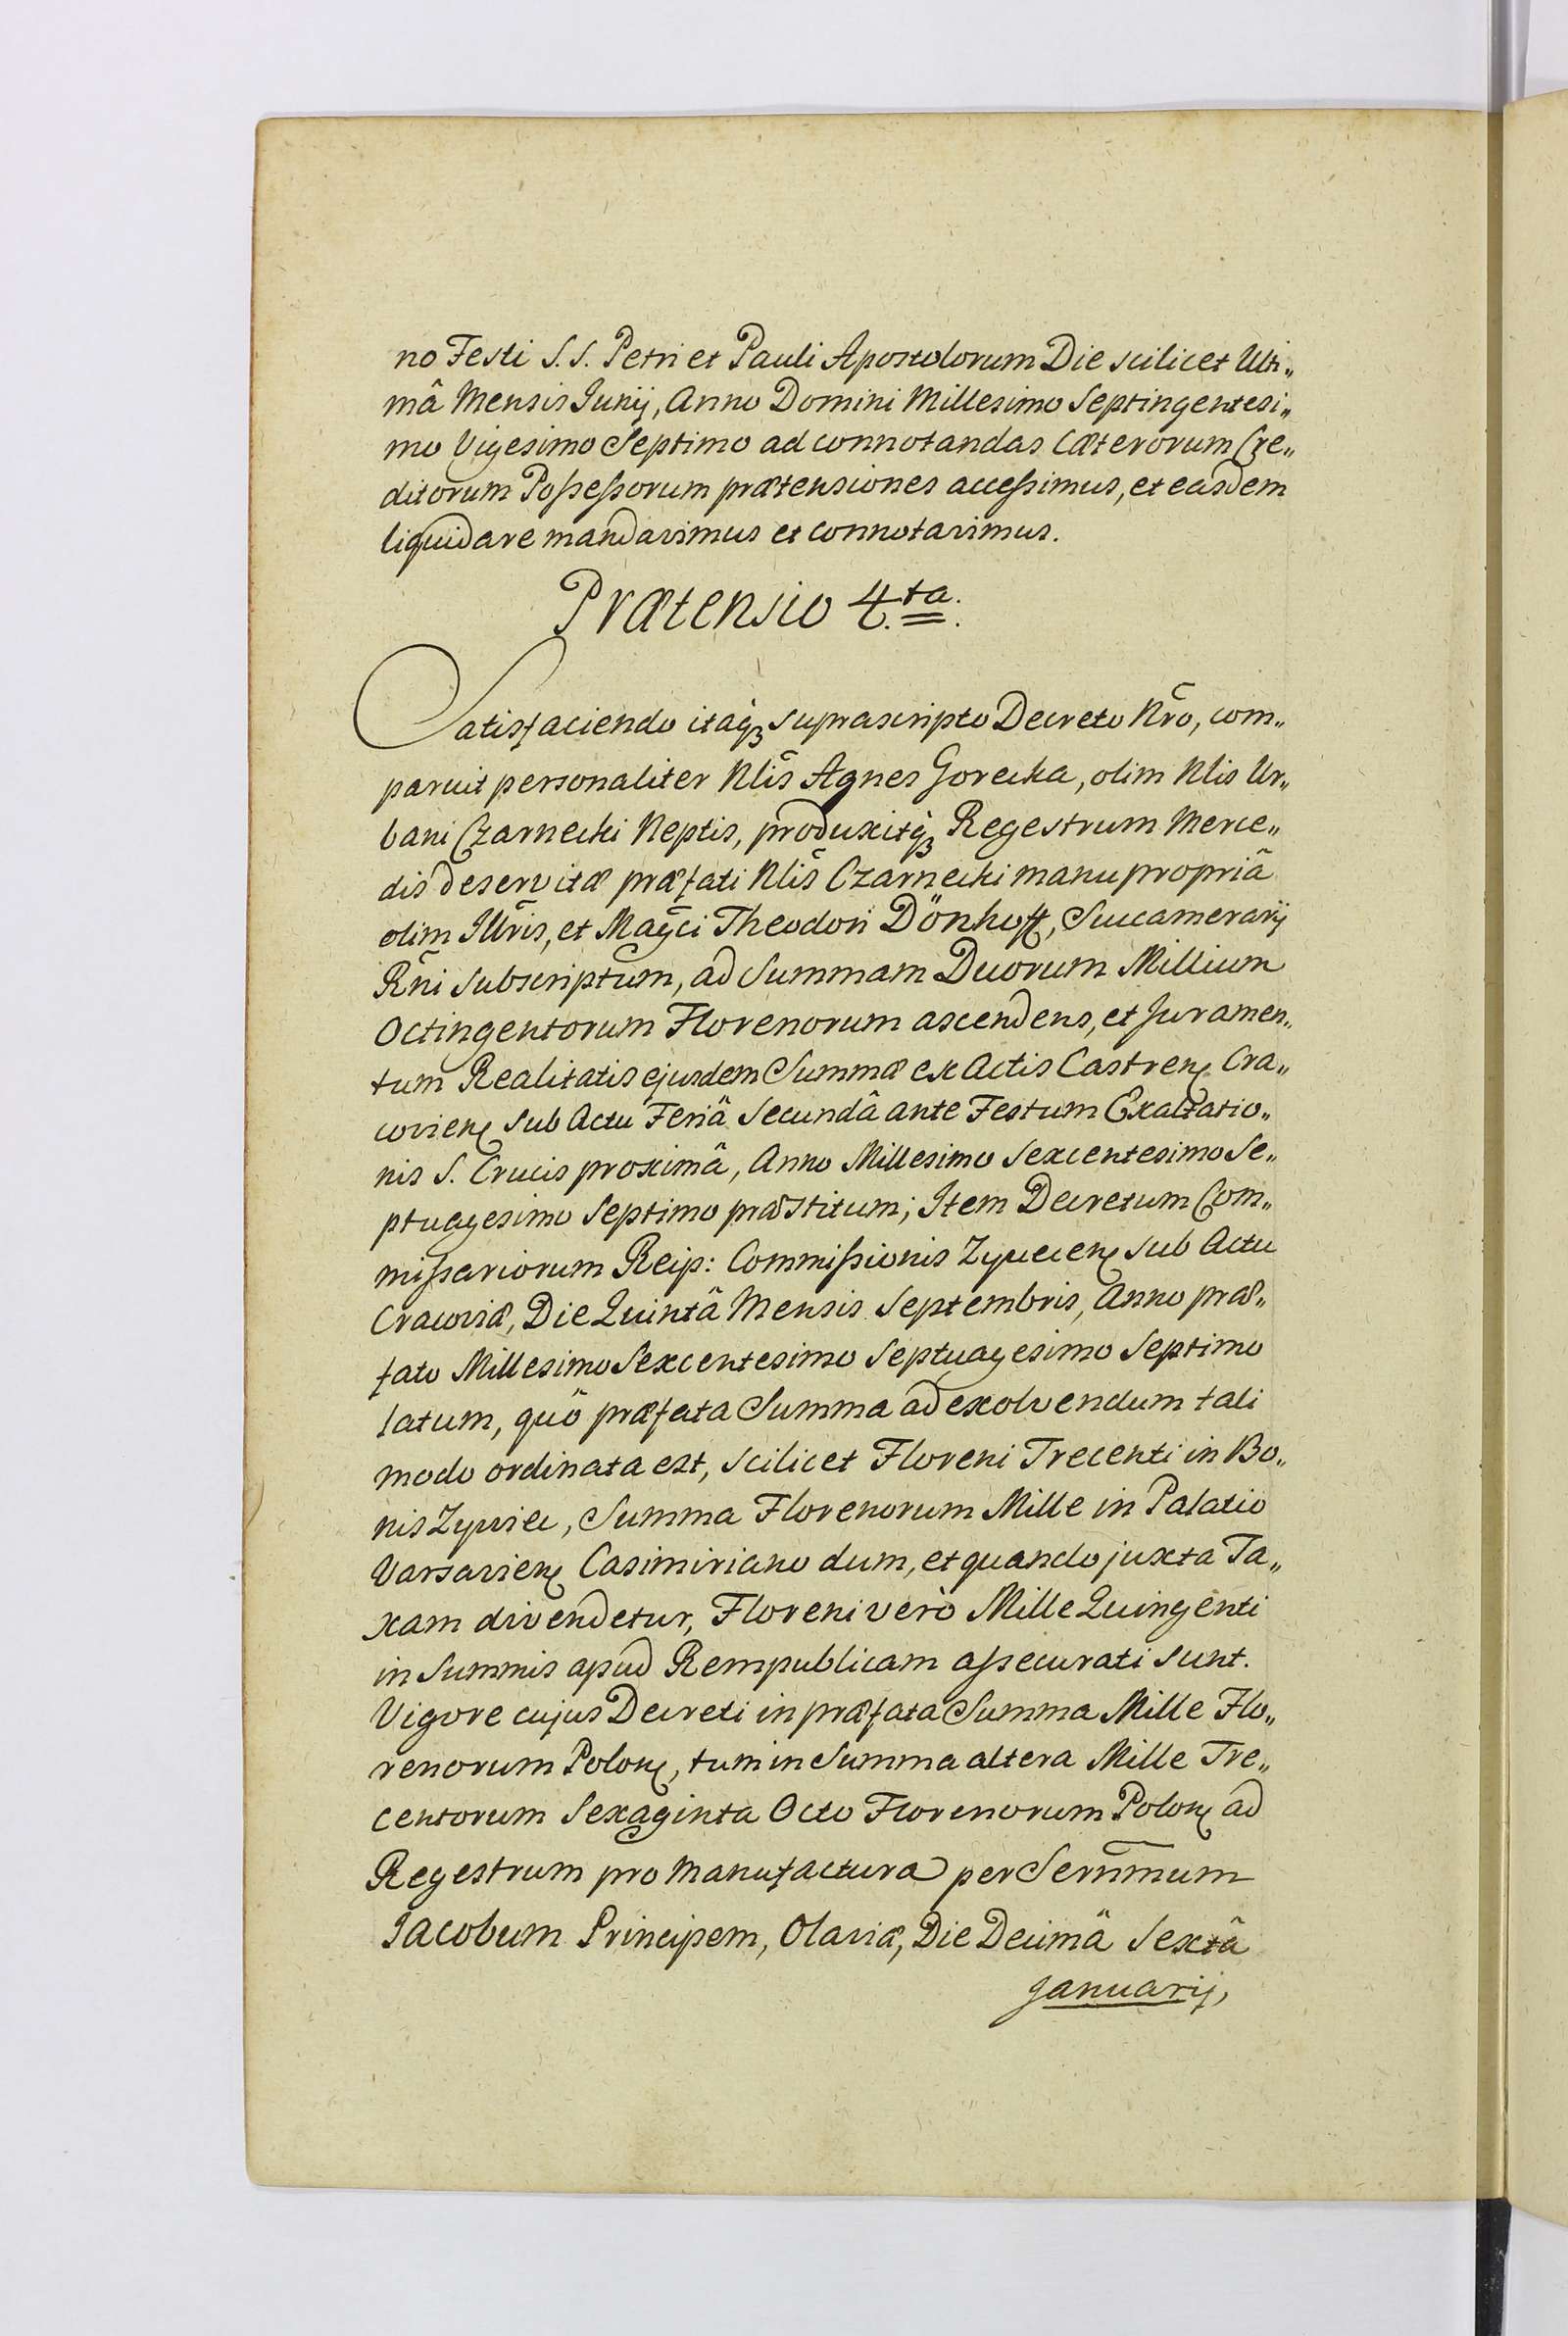 no Festi S.S. Petri et Pauli Apostolorum Die scilicet Ulti„
mâ Mensis Junij, Anno Domini Millesimo Septingentesi„
mo Vigesimo Septimo ad connotandas Cæterorum Cre„
ditorum Poſseſsorum prætensiones acceſsimus, et easdem
liquidare mandavimus et connotavimus.
Prætensio 4.ta.
Satisfaciendo itaqꝫ suprascripto Decreto Nr̄o, com„
paruit personaliter Nl̄is Agnes Gorecka, olim Nlis Ur„
bani Czarnecki Neptis, produxitqꝫ Regestrum Merce„
dis deservitæ præfati Nl̄is Czarnecki manu propriâ
olim Illr̄is, et Mag̅ci Theodori Dönhoff, Succamerarij
Rn̄i subscriptum, ad Summam Duorum Millium
Octingentorum Florenorum ascendens, et Juramen„
tum Realitatis ejusdem Summæ ex Actis Castrenꝭ Cra„
covienꝭ sub Actu Feriâ Secundâ ante Festum Exaltatio„
nis S. Crucis proximâ, Anno Millesimo Sexcentesimo Se„
ptuagesimo Septimo præstitum; Item Decretum Com„
miſsariorum Reip: Commiſsionis Zyvecenꝭ sub Actu
Cracoviæ, Die Quintâ Mensis Septembris, Anno præ„
fato Millesimo Sexcentesimo Septuagesimo Septimo
latum, quô præfata Summa ad exolvendum tali
modo ordinata est, scilicet Floreni Trecenti in Bo„
nis Zywiec, Summa Florenorum Mille in Palatio
Varsavienꝭ Casimiriano dum, et quando juxta Ta„
xam divendetur, Floreni verò Mille Quingenti
in Summis apud Rempublicam aſsecurati sunt.
Vigore cujus Decreti in præfata Summa Mille Flo„
renorum Polonꝭ, tum in Summa altera Mille Tre„
centorum Sexaginta Octo Florenorum Polonꝭ ad
Regestrum pro Manufactura per Sern̄mum
Jacobum Principem, Olaviæ, Die Decimâ Sextâ
Januarij,